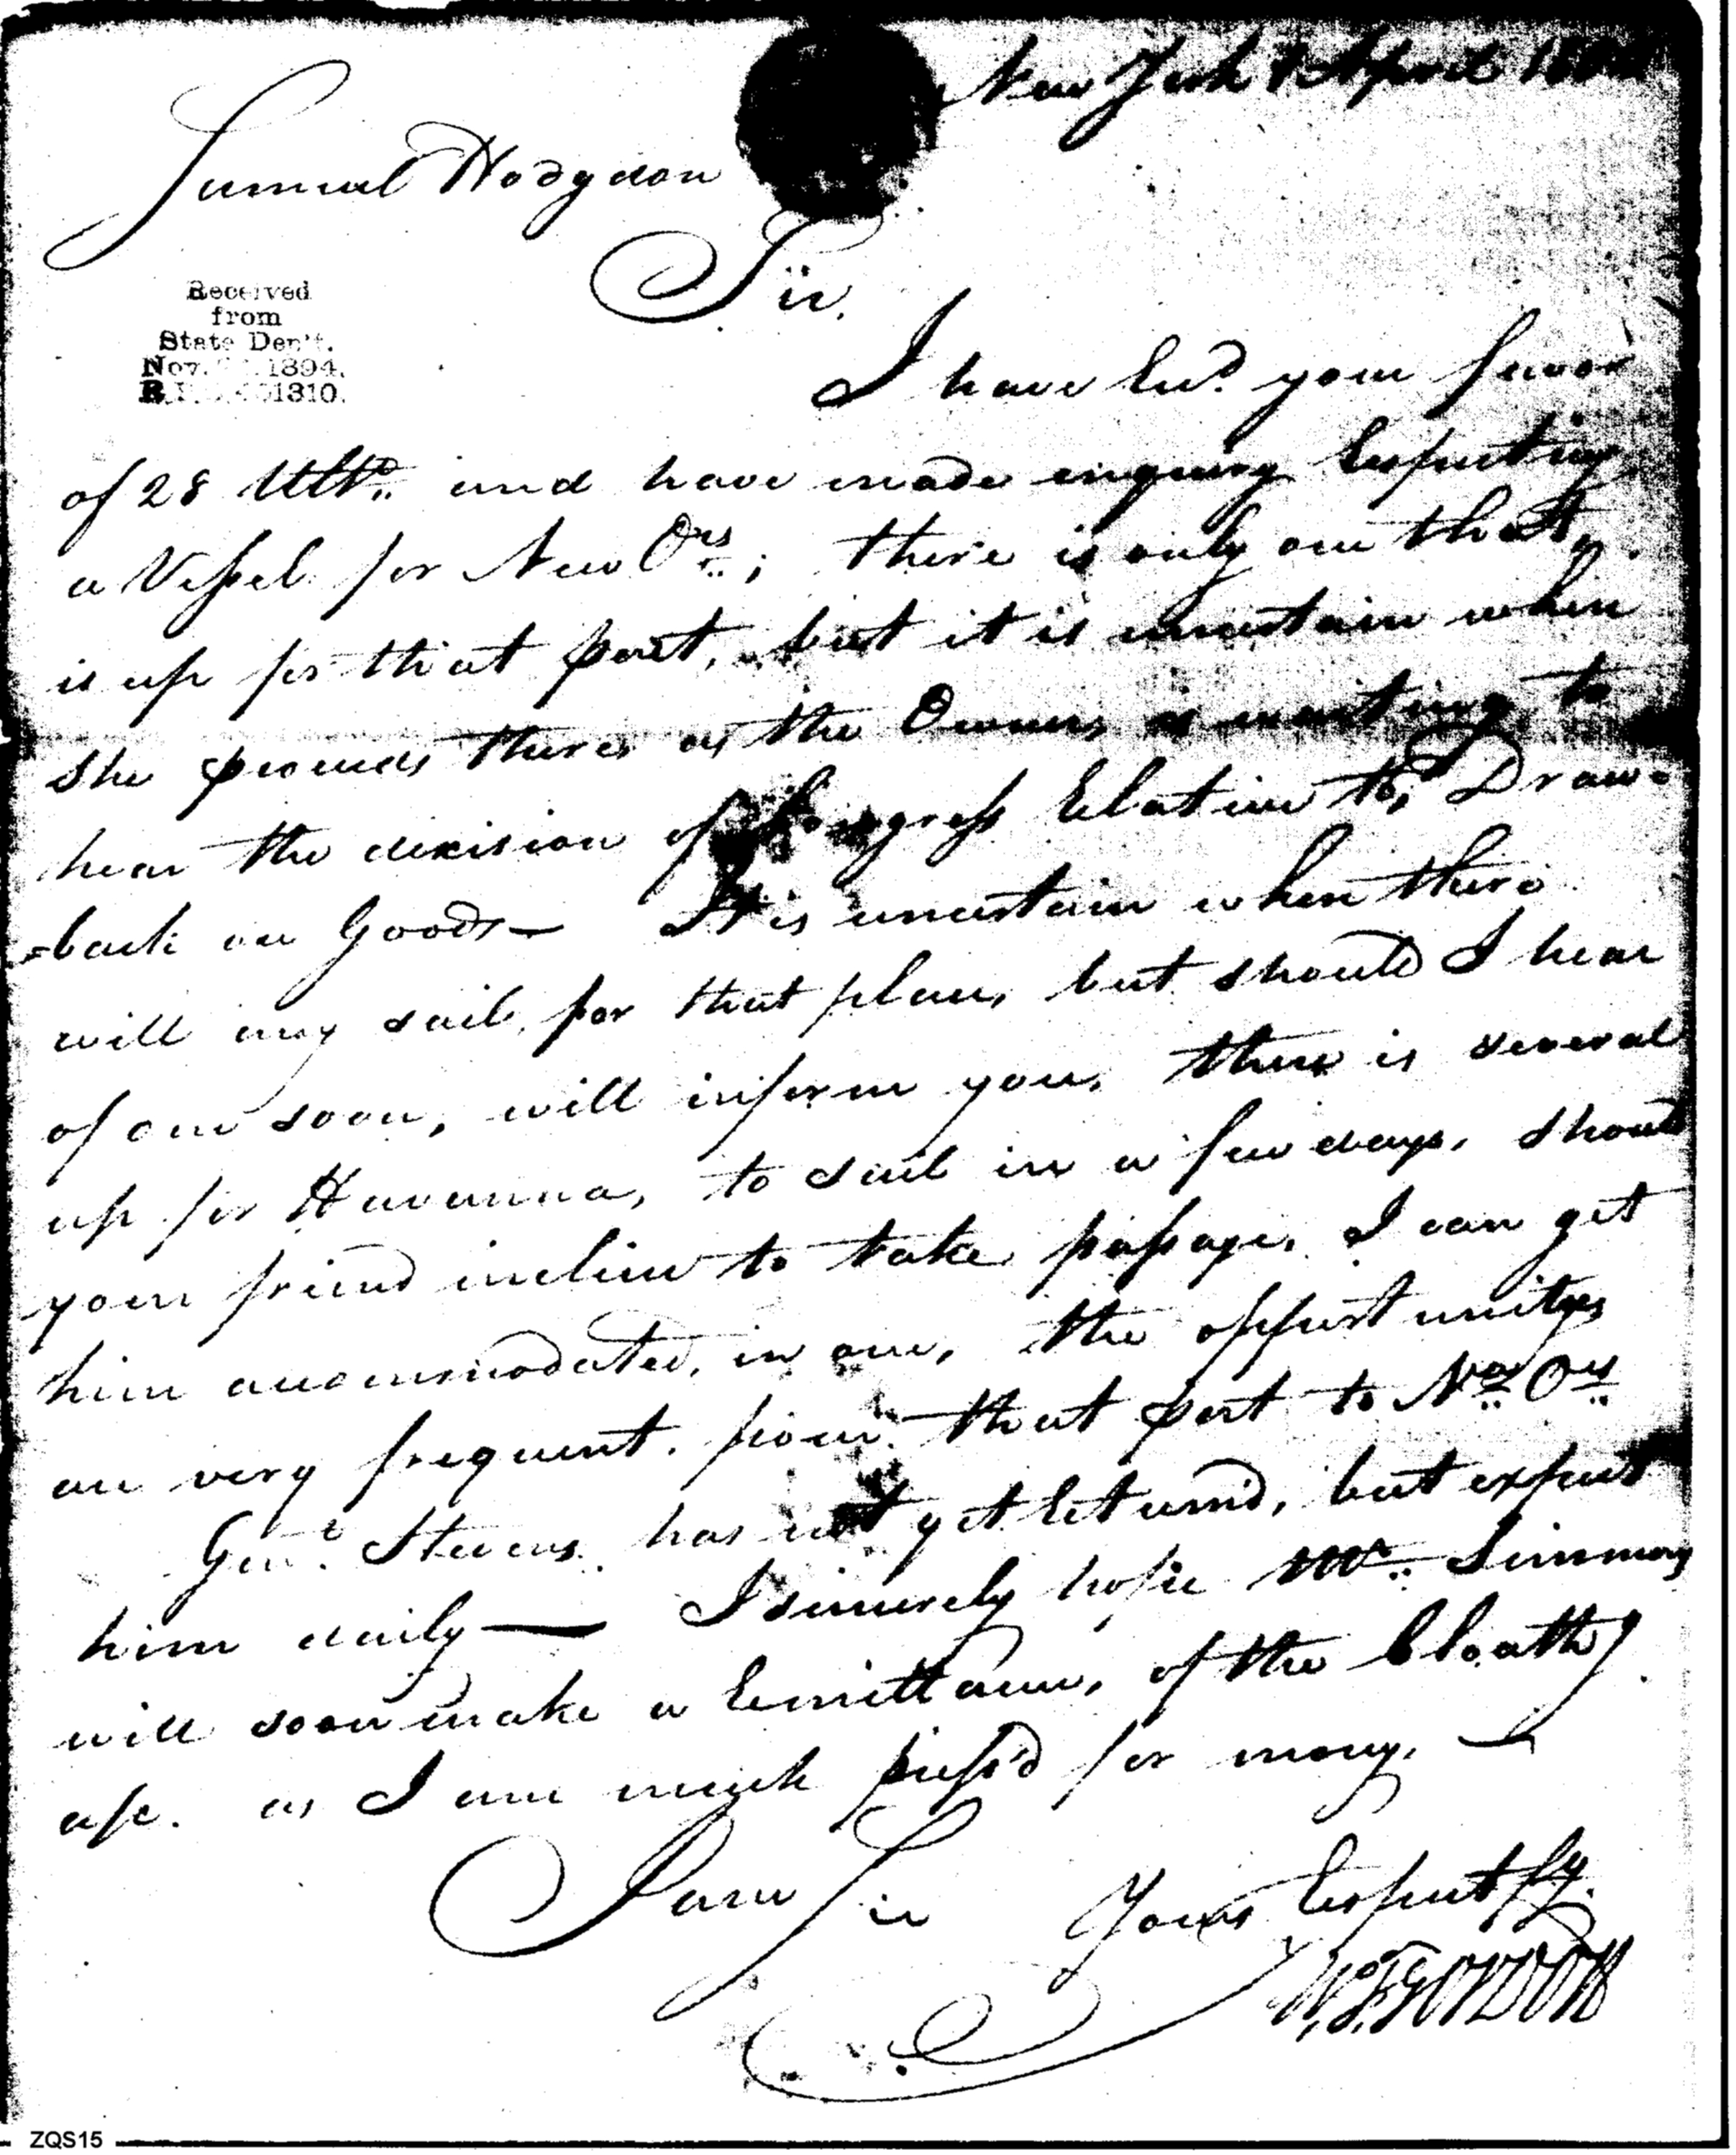 New York April
Samuel Hodgdon
Sir.
Received
from
State Dep't.
Nov. 1894.
1310.
I have Recd. your favor
of 28 Ulto. and have made enquiry Respecting
a Vessel for New Ors; there is only one that
is up for that port, but it is uncertain when
she proceeds there as the Owners is waiting to
hear the decision of Congress Relative to Draw=
=back on Goods— It is uncertain when there
will any sail for that place, but should I hear
of one soon, will inform you, there is several
up for Havanna, to sail in a few days, should
your friend incline to take passage, I can get
him accommodated, in one, the opportunitys
are very frequent. from that port to Nw. Ors
Genl. Stevens has not yet returnd, but expect
him daily — I sincerely hope Mr. Simmons
will soon make a Remittance, of the Cloathg.
a/c. as I am much press'd for mony. —
I am Sir Yours Respectfy.
ZQS15